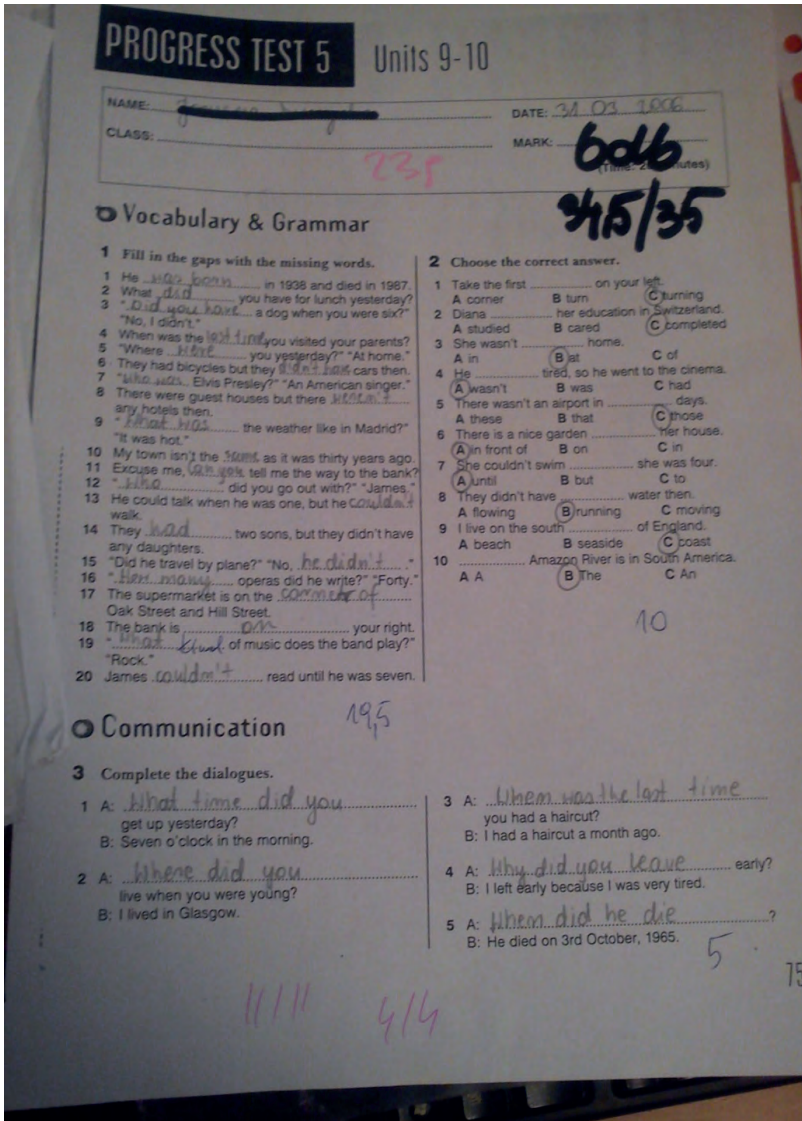 PROGRESS TEST 5 Units 9-10
NAME:
DATE: 31 03 2006
CLASS:
MARK: bdb
(Time: 20 minutes)
23,
34,5/35
Vocabulary & Grammar
1 Fill in the gaps with the missing words.
1 He was born in 1938 and died in 1987.
2 What did you have for lunch yesterday?
3 "Did you have a dog when you were six?"
"No, I didn't."
4 When was the last time you visited your parents?
5 "Where were you yesterday?" "At home."
6 They had bicycles but they didn't have cars then.
7 "Who was Elvis Presley?" "An American singer."
8 There were guest houses but there weren't
any hotels then.
9 "What was the weather like in Madrid?"
"It was hot."
10 My town isn't the same as it was thirty years ago.
11 Excuse me, can you tell me the way to the bank?
12 "Who did you go out with?" "James."
13 He could talk when he was one, but he couldn't
walk.
14 They had two sons, but they didn't have
any daughters.
15 "Did he travel by plane?" "No, he didn't."
16 "How many operas did he write?" "Forty."
17 The supermarket is on the corner of
Oak Street and Hill Street.
18 The bank is on your right.
19 "What kind of music does the band play?"
"Rock."
20 James couldn't read until he was seven.
19,5
2 Choose the correct answer.
1 Take the first ............ on your left.
A corner B turn C turning
2 Diana ............ her education in Switzerland.
A studied B cared C completed
3 She wasn't ............ home.
A in B at C of
4 He ............ tired, so he went to the cinema.
A wasn't B was C had
5 There wasn't an airport in ............ days.
A these B that C those
6 There is a nice garden ............ her house.
A in front of B on C in
7 She couldn't swim ............ she was four.
A until B but C to
8 They didn't have ............ water then.
A flowing B running C moving
9 I live on the south ............ of England.
A beach B seaside C coast
10 ............ Amazon River is in South America.
A A B The C An
10
Communication
3 Complete the dialogues.
1 A: What time did you
get up yesterday?
B: Seven o'clock in the morning.
2 A: Where did you
live when you were young?
B: I lived in Glasgow.
3 A: When was the last time
you had a haircut?
B: I had a haircut a month ago.
4 A: Why did you leave early?
B: I left early because I was very tired.
5 A: When did he die ?
B: He died on 3rd October, 1965.
5
75
11/11 4/4